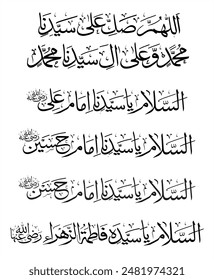 اللهم صل على سيدنا
محمد وعلى ال سيدنا محمد
السلام يا سيدنا امام على رضی اللہ عنہ
السلام يا سيدنا امام حسين رضی اللہ عنہ
السلام يا سيدنا امام حسن رضی اللہ عنہ
السلام يا سيده فاطمة الزهراء رضی اللہ عنہا
shutterstock.com · 2481974321